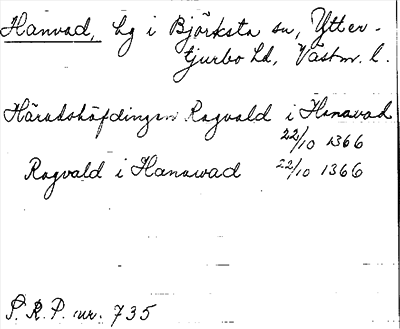 Hanvad, hg i Björksta sn, Ytter-
tjurbo hd, Västm. l.
Häradshöfdingen Ragvald i Hanavad
22/10 1366
Ragvald i Hanawad 22/10 1366
S.R.P. nr. 735